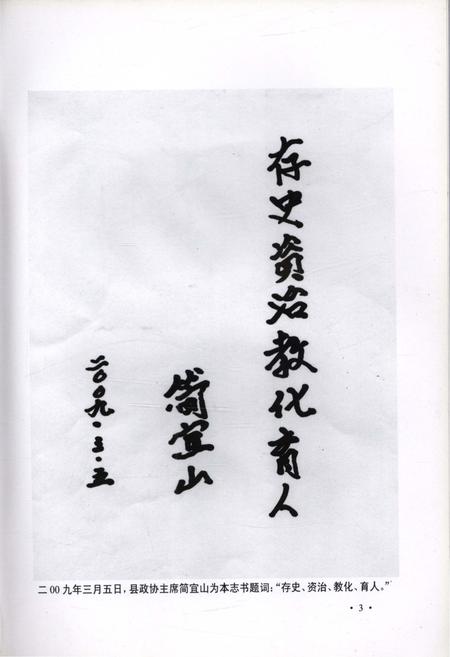 存史资治教化育人
简宜山
二〇〇九·三·五
二00九年三月五日，县政协主席简宜山为本志书题词：“存史、资治、教化、育人。”
·3·